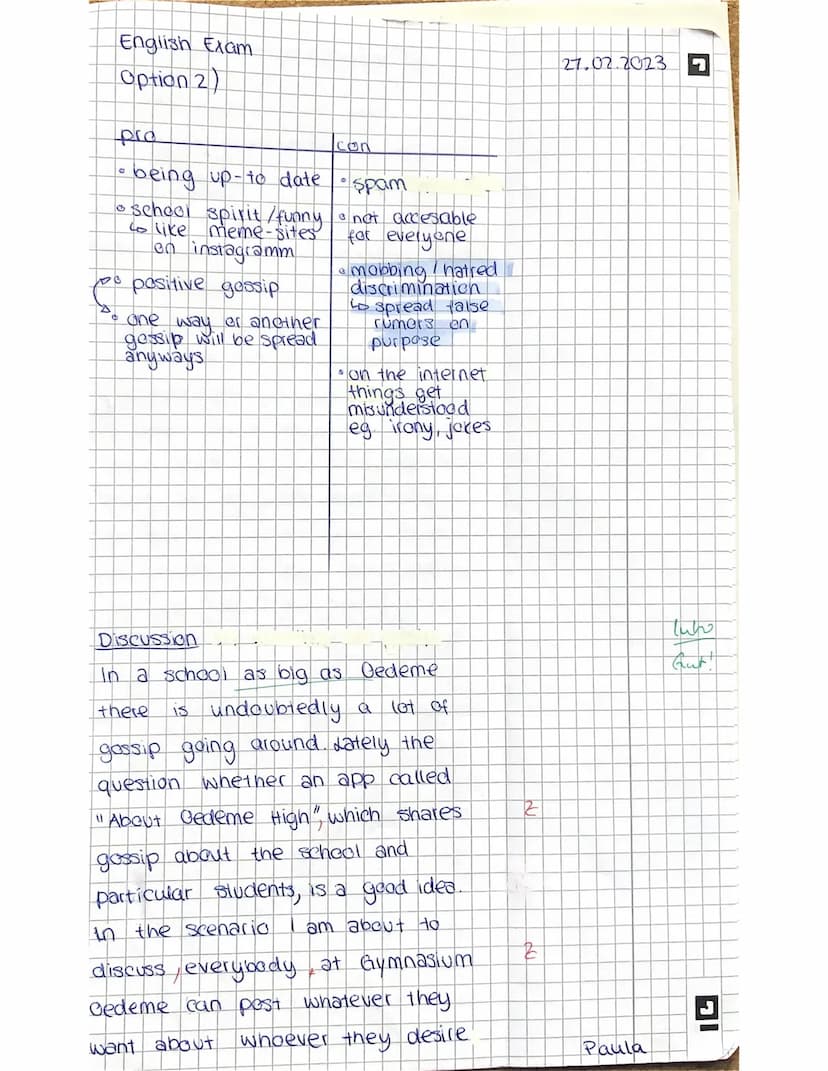 English Exam
27.02.2023
Option 2)
pro
con
• being up-to date
• school spirit/funny
↳ like meme-sites
on instagramm
• positive gossip
• one way or another
gossip will be spread
anyways
• spam
• not accesable
for everyone
• mobbing / hatred
discrimination
↳ spread false
rumors on
purpose
• on the internet
things get
misunderstood
eg. irony, jokes
Discussion
Intro
Gut!
In a school as big as Oedeme
there is undoubtedly a lot of
gossip going around. Lately the
question whether an app called
"About Oedeme High", which shares
Z
gossip about the school and
particular students, is a good idea.
In the scenario I am about to
discuss, everybody, at Gymnasium
Z
Oedeme can post whatever they
want about whoever they desire.
Paula